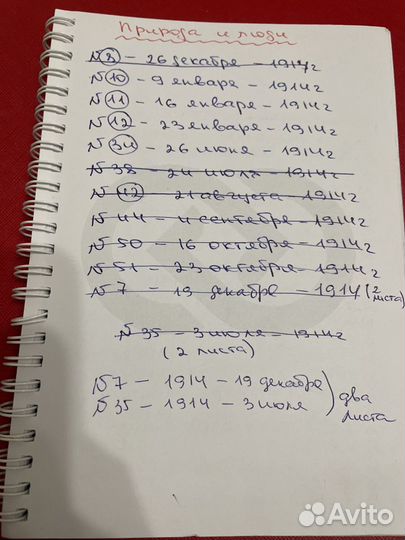 Природа и люди
№8 – 26 декабря – 1914г
№10 – 9 января – 1914г
№11 – 16 января – 1914г
№12 – 23 января – 1914г
№34 – 26 июня – 1914г
№38 – 24 июля – 1914г
№42 – 21 августа – 1914г
№44 – 4 сентября – 1914г
№50 – 16 октября – 1914г
№51 – 23 октября – 1914г
№7 – 19 декабря – 1914 (2 листа)
№35 – 3 июля – 1914г
(2 листа)
№7 – 1914 – 19 декабря
№35 – 1914 – 3 июля
) два листа
Avito